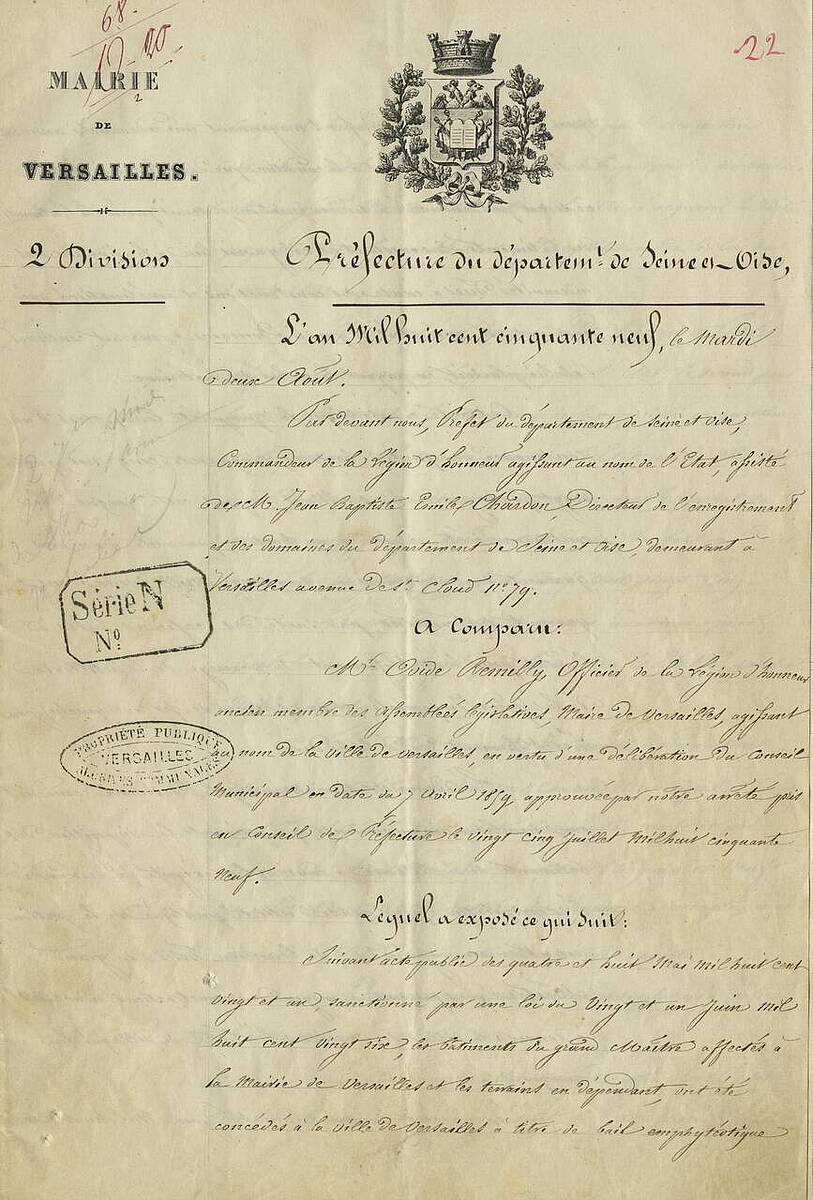 68
12 20
2
22
MAIRIE
DE
VERSAILLES.
2 Division
Préfecture du départem.t de Seine et-Oise,
L'an Mil huit cent cinquante neuf, le Mardi
deux Août.
Par devant nous, Préfet du département de Seine et Oise,
Commandeur de la Légion d'honneur agissant au nom de l'Etat, assisté
de M. Jean Baptiste Emile Chardon, Directeur de l'enregistrement
et des domaines du département de Seine et Oise, demeurant à
Versailles avenue de St. Cloud no. 79.
A Comparu:
Mr. Ovide Remilly, Officier de la Légion d'honneur
ancien membre des Assemblées législatives, Maire de Versailles, agissant
au nom de la Ville de Versailles, en vertu d'une délibération du Conseil
Municipal en date du 7 Avril 1859 approuvée par notre arrêté pris
en Conseil de Préfecture le vingt cinq Juillet Mil huit cinquante
neuf.
Lequel a exposé ce qui suit:
Suivant acte public des quatre et huit Mai Mil huit cent
vingt et un, sanctionné par une loi du Vingt et un Juin Mil
huit cent vingt six, les bâtiments du grand Maître affectés à
la Mairie de Versailles et les terrains en dépendant, ont été
concédés à la ville de Versailles à titre de bail emphytéotique
Série N
No
PROPRIÉTÉ PUBLIQUE
VERSAILLES
ARCHIVES COMMUNALES